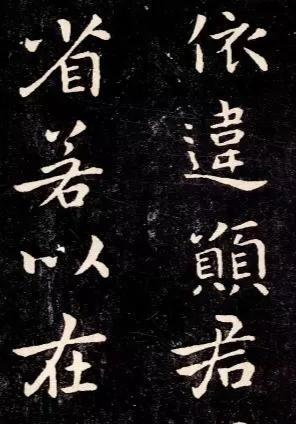 依違願君
省若以在